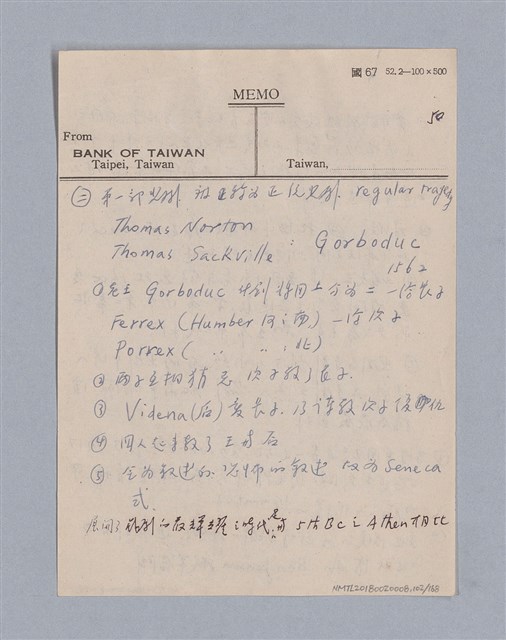 國 67 52.2—100×500
MEMO
50
From
BANK OF TAIWAN
Taipei, Taiwan
Taiwan,
㊁ 第一部悲劇 被正稱為正統悲劇. regular tragedy
Thomas Norton
Thomas Sackville : Gorboduc
1562
① 先王 Gorboduc 計劃將國土分為二 一給長子
Ferrex (Humber 河;南) 一給次子
Porrex ( 〃 〃 ; 北)
② 兩子互相猜忌 次子殺了長子.
③ Videna (后) 愛長子. 乃謀殺次子復仇
④ 國人起事殺了王與后
⑤ 全為敘述的. 的敘述 成為 Seneca
式.
展開了 的最 時代是前 5th BC
NMTL20180020008, 102/168